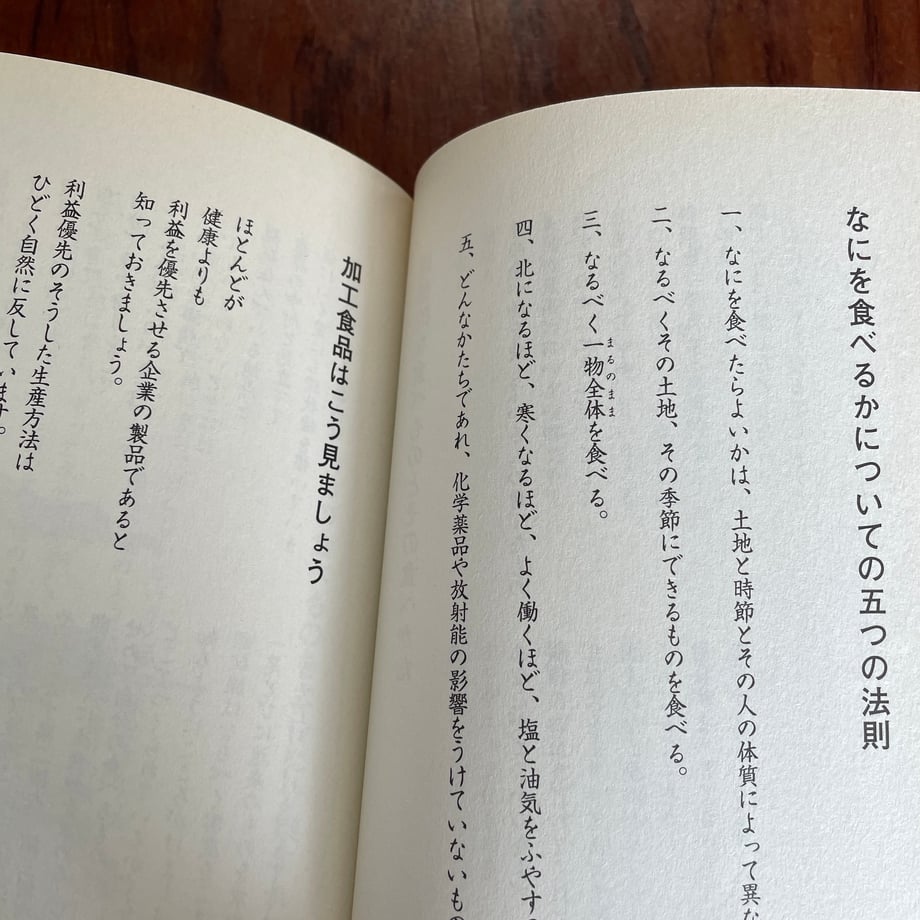 なにを食べるかについての五つの法則
一、なにを食べたらよいかは、土地と時節とその人の体質によって異な
二、なるべくその土地、その季節にできるものを食べる。
三、なるべく一物全体を食べる。
まるのまま
四、北になるほど、寒くなるほど、よく働くほど、塩と油気をふやす
五、どんなかたちであれ、化学薬品や放射能の影響をうけていないもの
加工食品はこう見ましょう
ほとんどが
健康よりも
利益を優先させる企業の製品であると
知っておきましょう。
利益優先のそうした生産方法は
ひどく自然に反しています。